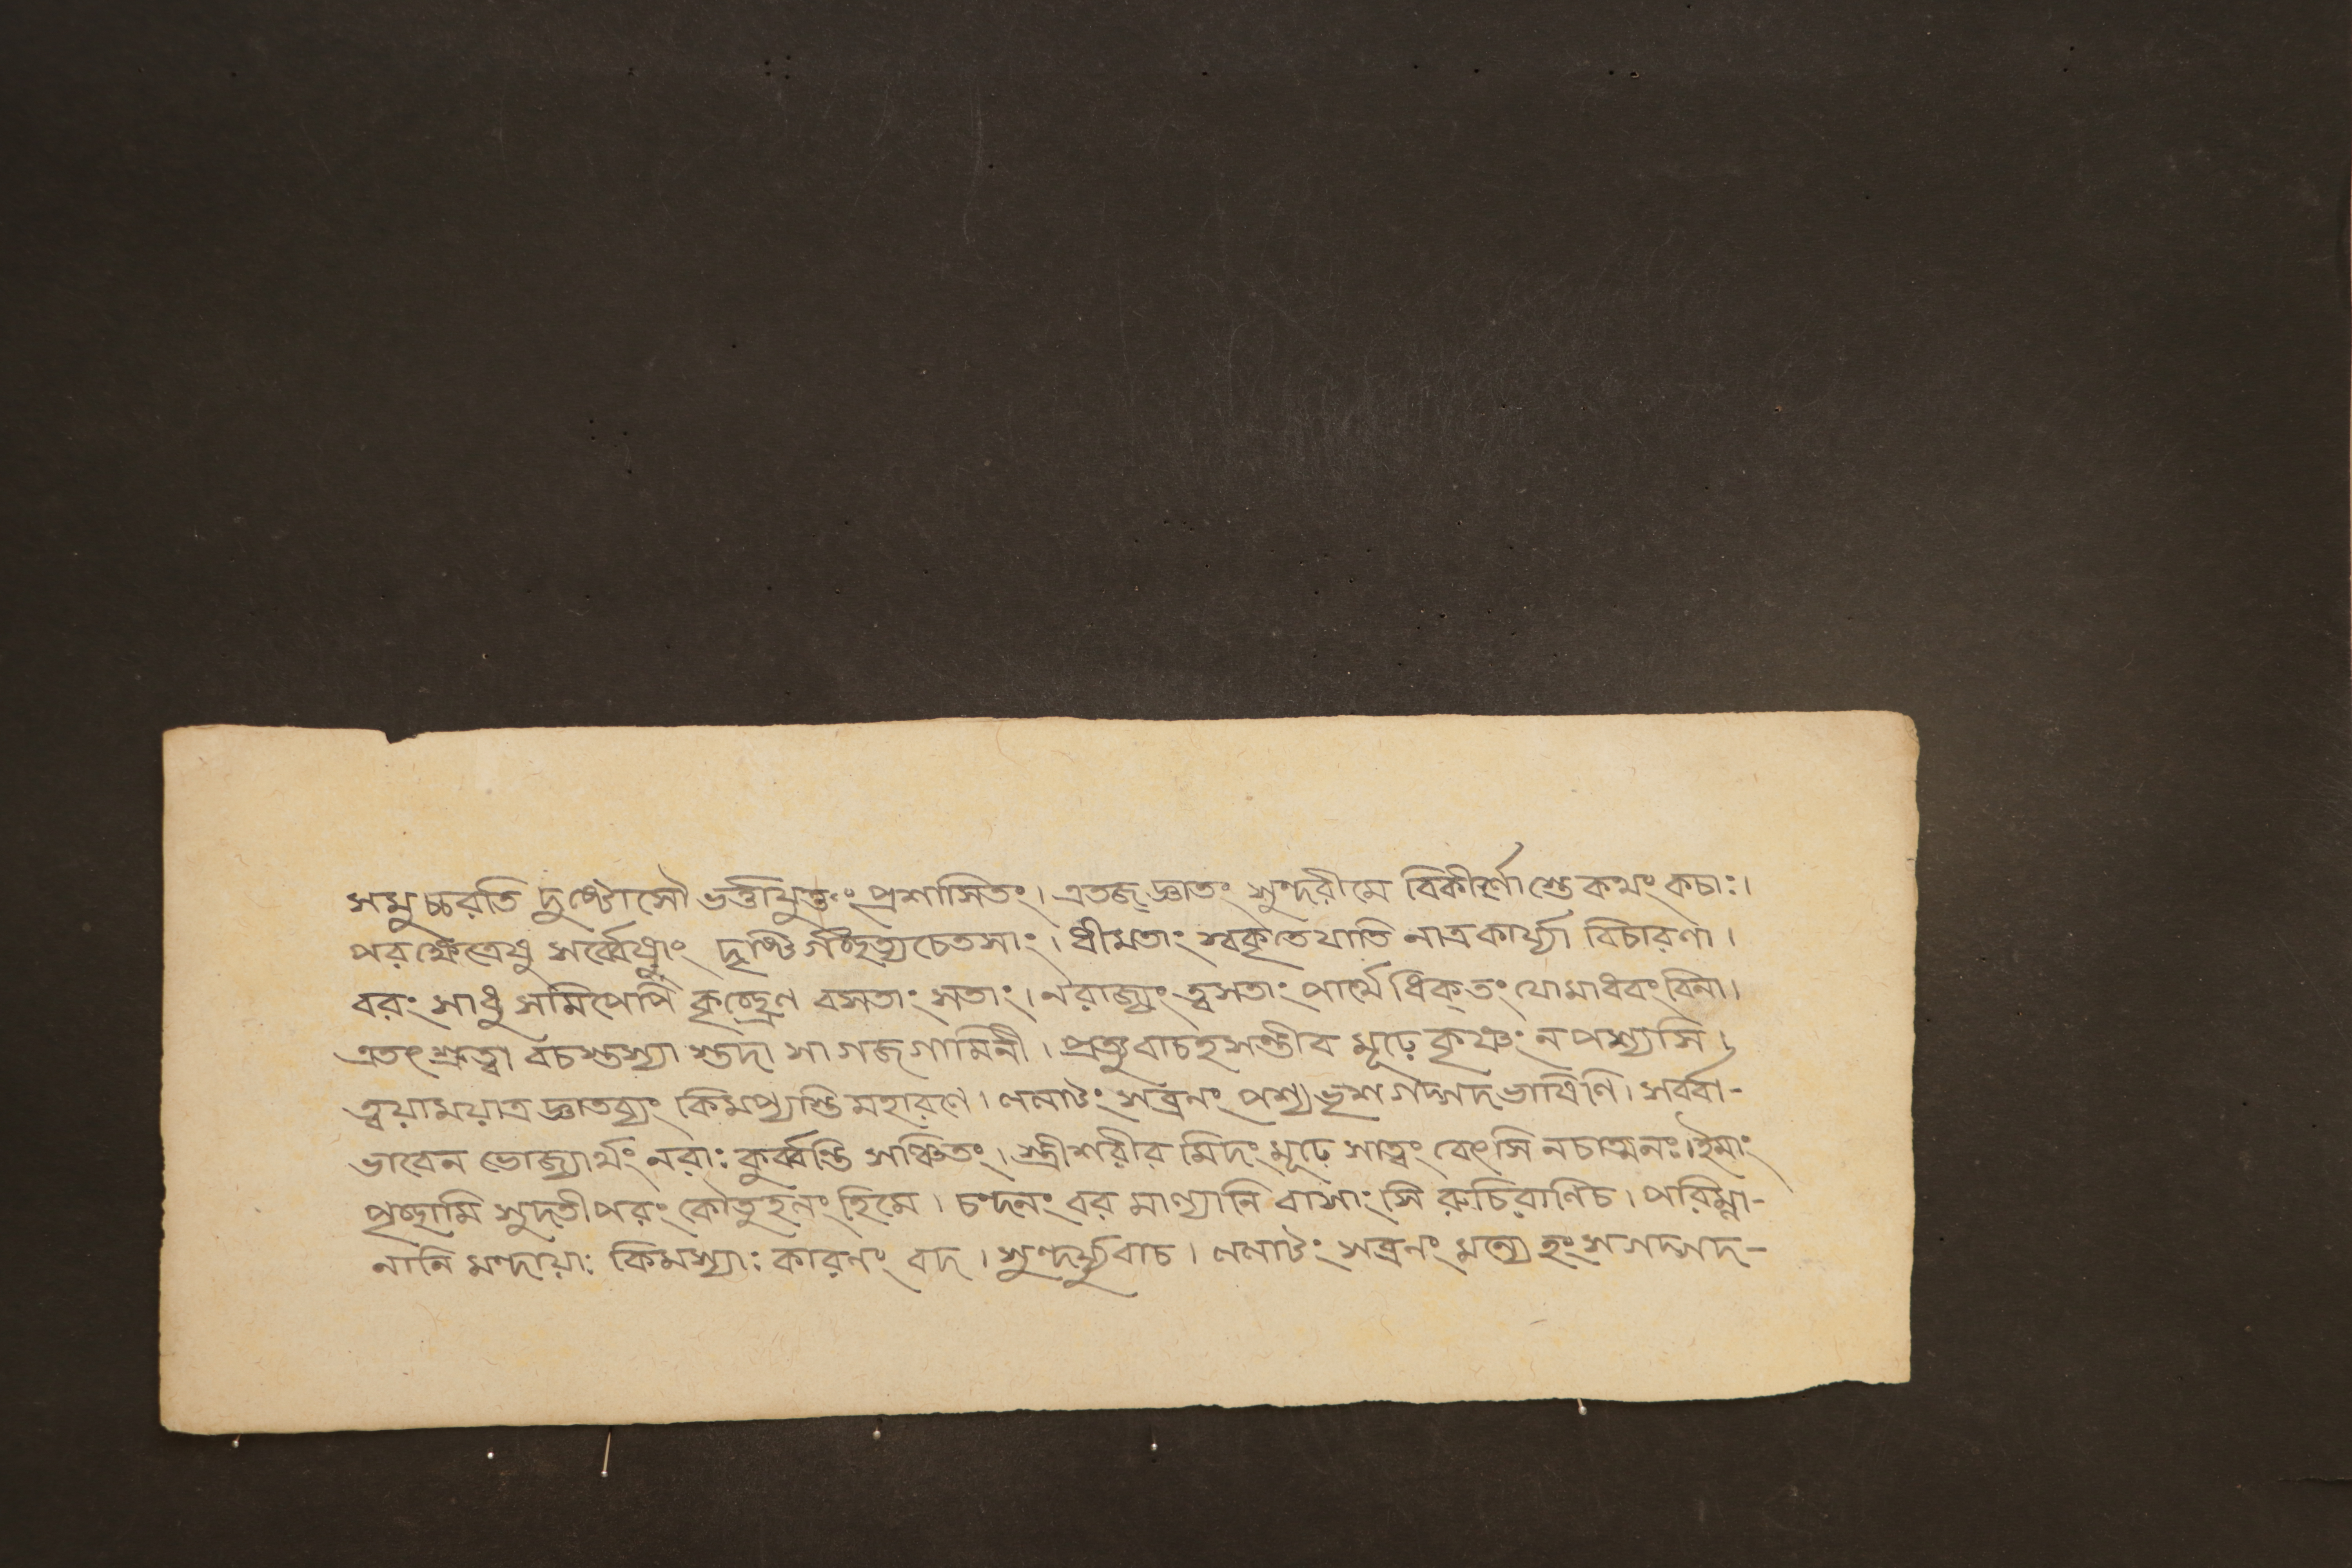 সমুচ্চরতি দুষ্টোসৌ ভর্ত্তায়ুক্তং প্রশাসিতং। এতজ্ জ্ঞাতং সুন্দরীমে বিকীর্ণাস্তে কথং কচাঃ।
পরক্ষেত্রেষু সর্ব্বেষাং দৃষ্টি র্গচ্ছত্যচেতসাং। ধীমতাং স্বকৃতে যাতি নাত্রকার্য্যা বিচারণা।
বরং সাধু সমিপেপি কৃচ্ছ্রেণ বসতাং সতাং। নরাজ্যং ত্বসতাং পার্শ্বে ধিক্ তং যোমাধবং বিনা।
এতৎ শ্রুত্বা বচস্তস্যা স্তদা সা গজগামিনী। প্রত্যুবাচহসন্তীব মূঢ়ে কৃষ্ণং ন পশ্যসি।
ত্বয়াময়াত্র জ্ঞাতব্যং কিমপ্যস্তি মহারণে। ললাটং সব্রনং পশ্য ভৃশ গদ্গদভাষিণি। সর্ব্বা-
ভাবেন ভোজ্যার্থং নরাঃ কুর্ব্বন্তি সঞ্চিতং। স্ত্রীশরীর মিদং মূঢ়ে সাত্বং বেৎসি নচাত্মনঃ। ইমাং
প্রচ্ছামি সুদতী পরং কৌতুহলং হিমে। চংদনং বর মাল্যানি বাসাংসি রুচিরাণিচ। পরিম্লা-
নানি মন্দায়াঃ কিমস্যাঃ কারনং বদ। সুন্দর্য্যুবাচ। ললাটং সব্রনং মন্যে হং সগদ্গদ-